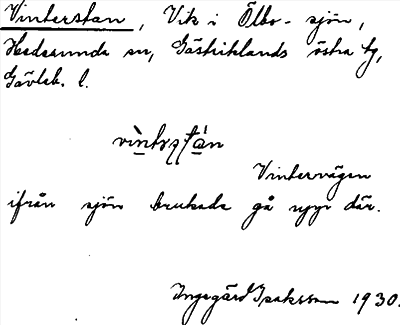 Vinterstan, Vik i Ölbo-sjön,
Hedesunda sn, Gästriklands östra tg,
Gävleb. l.
Vintervägen
ifrån sjön brukade gå upp där.
Ingegärd Isaksson 1930.